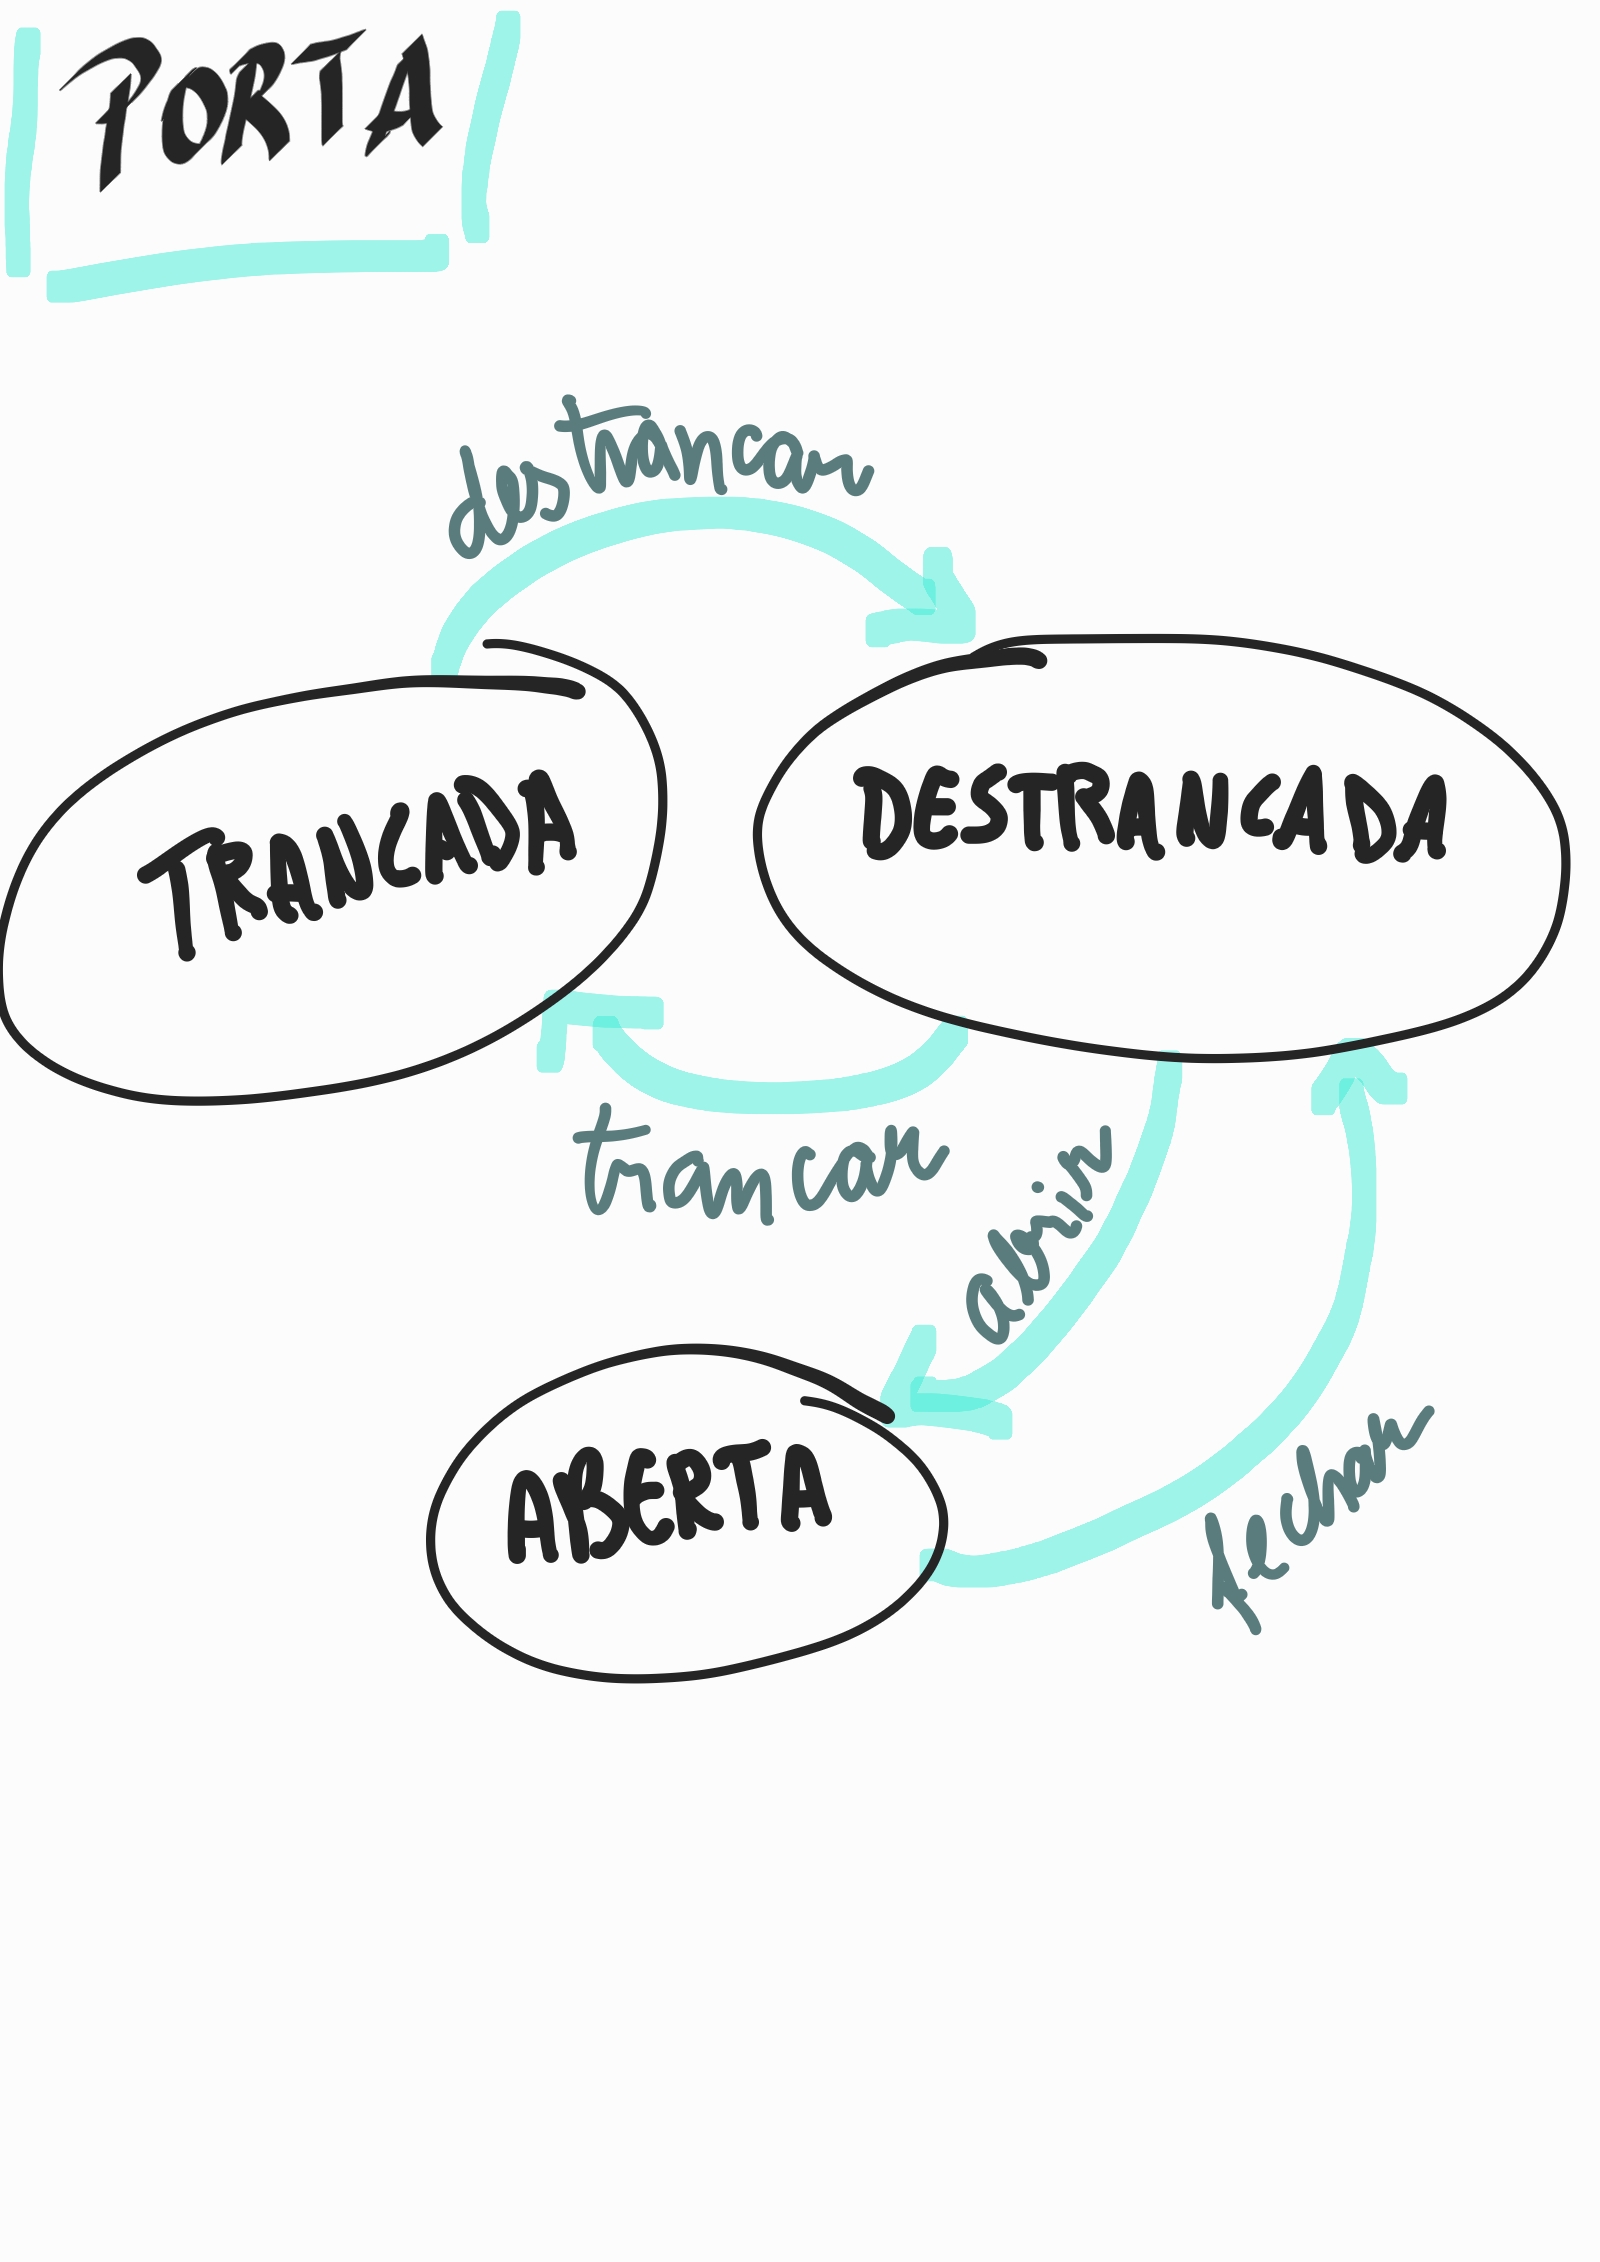 PORTA
destrancar
TRANCADA
DESTRANCADA
trancar
abrir
ABERTA
fechar